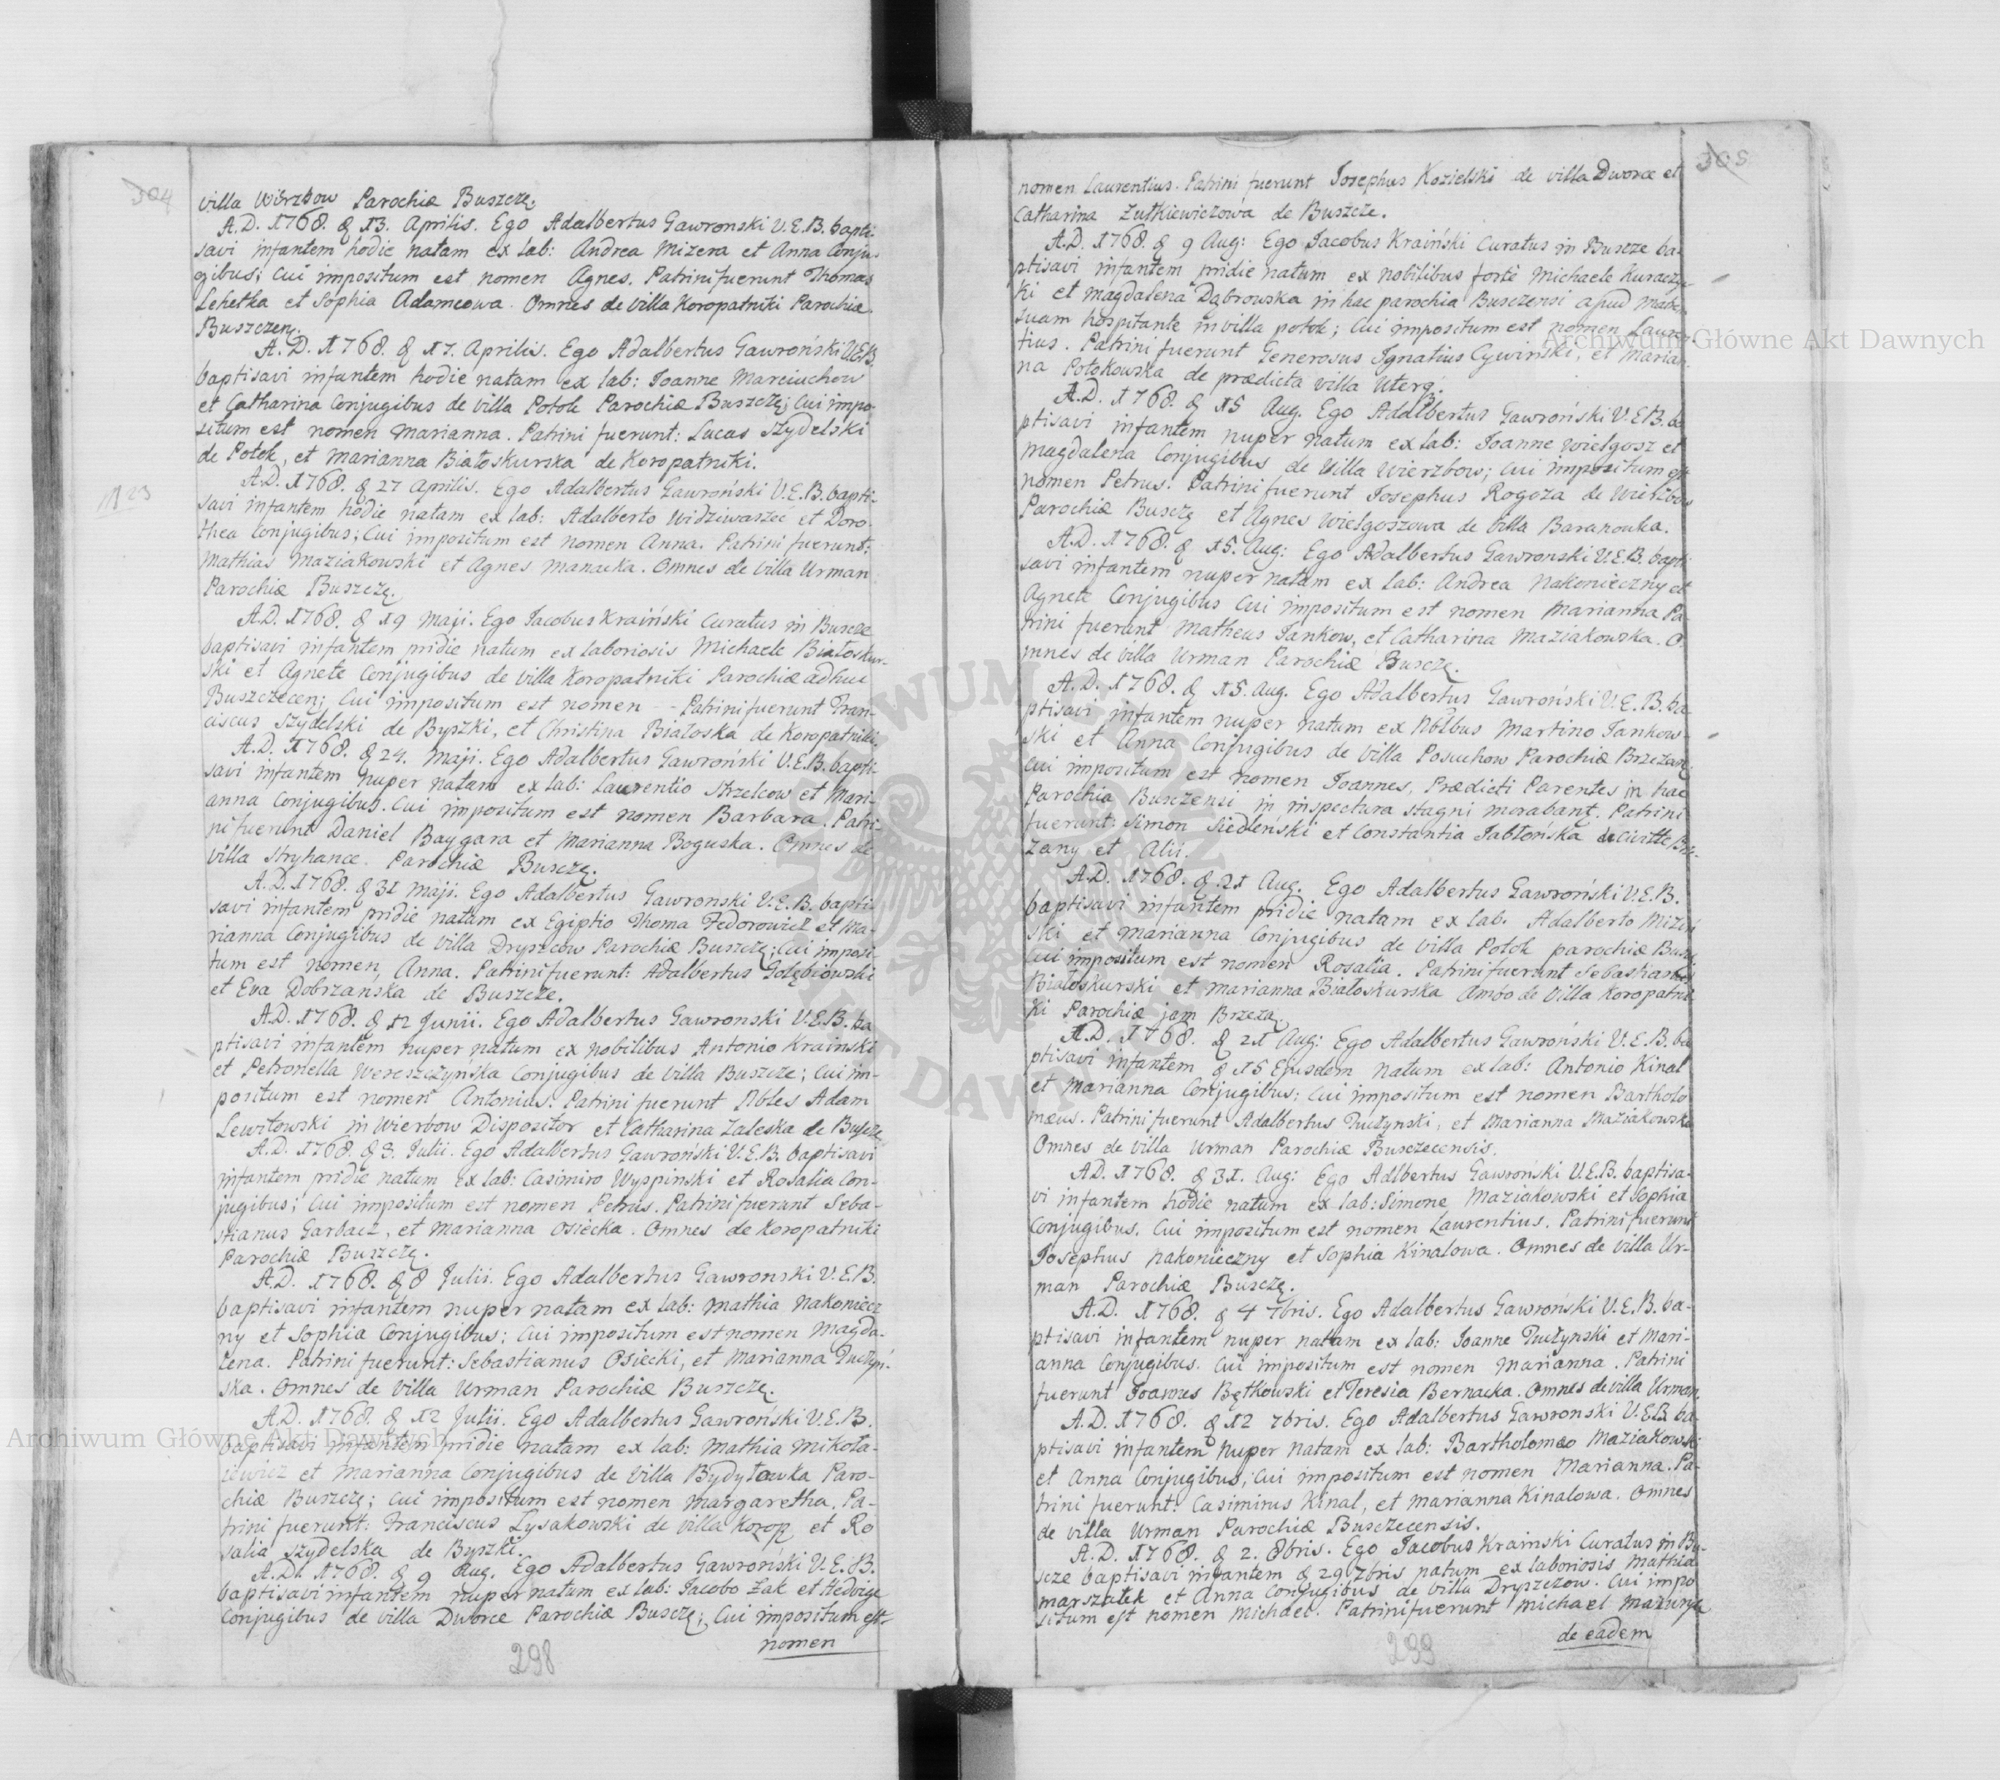 304
villa Wirzbow Parochiæ Buszczę.
A.D. 1768. d 13. Aprilis. Ego Adalbertus Gawronski V.E.B. bapti-
savi infantem hodie natam ex lab: Andrea Mizera et Anna Conju-
gibus; cui impositum est nomen Agnes. Patrini fuerunt Thomas
Lehetka et Sophia Adamcowa. Omnes de villa Koropatniki Parochiæ
Buszczen.
A.D. 1768. d 17. Aprilis. Ego Adalbertus Gawroński V.E.B.
baptisavi infantem hodie natam ex lab: Joanne Marciuchow
et Catharina Conjugibus de villa Potok Parochiæ Buszczę; cui impo-
situm est nomen Marianna. Patrini fuerunt: Lucas Szydelski
de Potok, et Marianna Białoskurska de Koropatniki.
A.D. 1768. d 27 Aprilis. Ego Adalbertus Gawroński V.E.B. bapti-
savi infantem hodie natam ex lab: Adalberto Widziwaszec et Doro-
thea Conjugibus; Cui impositum est nomen Anna. Patrini fuerunt:
Mathias Maziakowski et Agnes Manacka. Omnes de villa Urman
Parochiæ Buszczę.
A.D. 1768. d 19 Maji. Ego Jacobus Kraiński Curatus in Buscze
baptisavi infantem pridie natum ex laboriosis Michaele Białoskur-
ski et Agnete Conjugibus de villa Koropatniki Parochiæ adhuc
Buszczecen; Cui impositum est nomen -- Patrini fuerunt Fran-
ciscus Szydelski de Byszki, et Christina Białoska de Koropatniki.
A.D. 1768. d 24. Maji. Ego Adalbertus Gawroński V.E.B. bapti-
savi infantem nuper natam ex lab: Laurentio Strzelcow et Mari-
anna Conjugibus. Cui impositum est nomen Barbara. Patri-
ni fuerunt Daniel Baygara et Marianna Boguska. Omnes de
villa Stryhance. Parochiæ Busczę.
A.D. 1768. d 31 Maji. Ego Adalbertus Gawronski V.E.B. bapti-
savi infantem pridie natam ex Egiptio Thoma Fedorowicz et Ma-
rianna Conjugibus de villa Dryszczow Parochiæ Buszczę; Cui imposi-
tum est nomen Anna. Patrini fuerunt: Adalbertus Gołębiowski
et Eva Dobrzanska de Buszcze.
A.D. 1768. d 12 Junii. Ego Adalbertus Gawronski V.E.B. ba
ptisavi infantem nuper natum ex nobilibus Antonio Krainski
et Petronella Wereszczynska Conjugibus de villa Buszcze; Cui im-
positum est nomen Antonius. Patrini fuerunt Nobles Adam
Lewitowski in Wierbow Dispositor et Catharina Zaleska de Buszcze
A.D. 1768. d 3. Julii. Ego Adalbertus Gawroński V.E.B. baptisavi
infantem pridie natum ex lab: Casimiro Wyspinski et Rosalia Con-
jugibus; Cui impositum est nomen Petrus. Patrini fuerunt Seba-
stianus Garbacz, et Marianna Osiecka. Omnes de Koropatniki
Parochiæ Buszczę.
A.D. 1768. d 8 Julii. Ego Adalbertus Gawronski V.E.B.
baptisavi infantem nuper natam ex lab: Mathia Nakoniecz
ny et Sophia Conjugibus; Cui impositum est nomen Magda-
lena. Patrini fuerunt: Sebastianus Osiecki, et Marianna Tuczyn-
ska. Omnes de villa Urman Parochiæ Buszczę.
A.D. 1768. d 12 Julii. Ego Adalbertus Gawroński V.E.B.
baptisavi infantem pridie natam ex lab: Mathia Mikoła-
iewicz et Marianna Conjugibus de villa Bydytowka Paro-
chiæ Buszczę; Cui impositum est nomen Margaretha. Pa-
trini fuerunt: Franciscus Lysakowski de villa Korop et Ro
salia Szydelska de Byszki.
A.D. 1768. d 9 Aug. Ego Adalbertus Gawroński V.E.B.
baptisavi infantem nuper natum ex lab: Jacobo Zak et Hedvige
Conjugibus de villa Dworce Parochiæ Busczę; Cui impositum est
nomen
298
305
nomen Laurentius. Patrini fuerunt Josephus Kozielski de villa Dworce et
Catharina Zutkiewiczowa de Buszcze.
A.D. 1768. d 9 Aug: Ego Jacobus Kraiński Curatus in Buscze ba-
ptisavi infantem pridie natum ex nobilibus forte Michaele
ki et Magdalena Dąbrowska in hac parochia Busczensi apud
suam hospitante in villa Potok; Cui impositum est nomen Lauren-
tius. Patrini fuerunt Generosus Ignatius Cywiński, et Maria-
na Potokowska de prædicta villa Uterq.
A.D. 1768. d 15 Aug. Ego Adalbertus Gawroński V.E.B. ba
ptisavi infantem nuper natum ex lab: Joanne Wielgosz et
Magdalena Conjugibus de villa Wierzbow; Cui impositum est
nomen Petrus. Patrini fuerunt Josephus Rogoza de Wierzbow
Parochiæ Busczę et Agnes Wielgoszowa de villa Baranowka.
A.D. 1768. d 15. Aug: Ego Adalbertus Gawronski V.E.B. bapti
savi infantem nuper natam ex lab: Andrea Nakonieczny et
Agnete Conjugibus Cui impositum est nomen Marianna Pa
trini fuerunt Matheus Jankow, et Catharina Maziakowska. O
mnes de villa Urman Parochiæ Busczę.
A.D. 1768. d 15. Aug. Ego Adalbertus Gawroński V.E.B. ba-
ptisavi infantem nuper natum ex Nobibus Martino Jankow-
ski et Anna Conjugibus de villa Posuchow Parochiæ Brzezan;
Cui impositum est nomen Joannes, Prædicti Parentes in hac
Parochia Busczensi in inspectura stagni morabant. Patrini
fuerunt: Simon Siedleński et Constantia Jabłońska de Civitte Brze-
zany et Alii.
A.D. 1768. d 21 Aug. Ego Adalbertus Gawroński V.E.B.
baptisavi infantem pridie natam ex lab. Adalberto Mizer
ski et Marianna Conjugibus de villa Potok parochiæ Buscz
cui impositum est nomen Rosalia. Patrini fuerunt Sebastianus
Białoskurski et Marianna Białoskurska Ambo de villa Koropatni
ki Parochiæ jam Brzezą.
A.D. 1768. d 21 Aug: Ego Adalbertus Gawroński V.E.B. ba
ptisavi infantem d 15 Ejusdem natum ex lab: Antonio Kinal
et Marianna Conjugibus; Cui impositum est nomen Bartholo
mæus. Patrini fuerunt Adalbertus Tuczynski, et Marianna Maziakowska
Omnes de villa Urman Parochiæ Busczecensis.
A.D. 1768. d 31. Aug: Ego Adlbertus Gawroński V.E.B. baptisa-
vi infantem hodie natum ex lab: Simone Maziakowski et Sophia
Conjugibus. Cui impositum est nomen Laurentius. Patrini fuerunt
Josephus Nakonieczny et Sophia Kinalowa. Omnes de villa Ur-
man Parochiæ Busczę.
A.D. 1768. d 4 7bris. Ego Adalbertus Gawroński V.E.B. ba-
ptisavi infantem nuper natam ex lab: Joanne Tuczynski et Mari-
anna Conjugibus. Cui impositum est nomen Marianna. Patrini
fuerunt Joannes Bętkowski et Teresia Bernacka. Omnes de villa Urman.
A.D. 1768. d 12 7bris. Ego Adalbertus Gawronski V.E.B. ba-
ptisavi infantem nuper natam ex lab: Bartholomeo Maziakowski
et Anna Conjugibus, Cui impositum est nomen Marianna. Pa-
trini fuerunt: Casimirus Kinal, et Marianna Kinalowa. Omnes
de villa Urman Parochiæ Busczecensis.
A.D. 1768. d 2. 8bris. Ego Jacobus Krainski Curatus in Bu-
scze baptisavi infantem d 29 7bris natum ex laboriosis Mathia
Marszałek et Anna Conjugibus de villa Dryszczow. Cui impo
situm est nomen Michael. Patrini fuerunt Michael Mazurga
de eadem
299
Archiwum Główne Akt Dawnych
Archiwum Główne Akt Dawnych